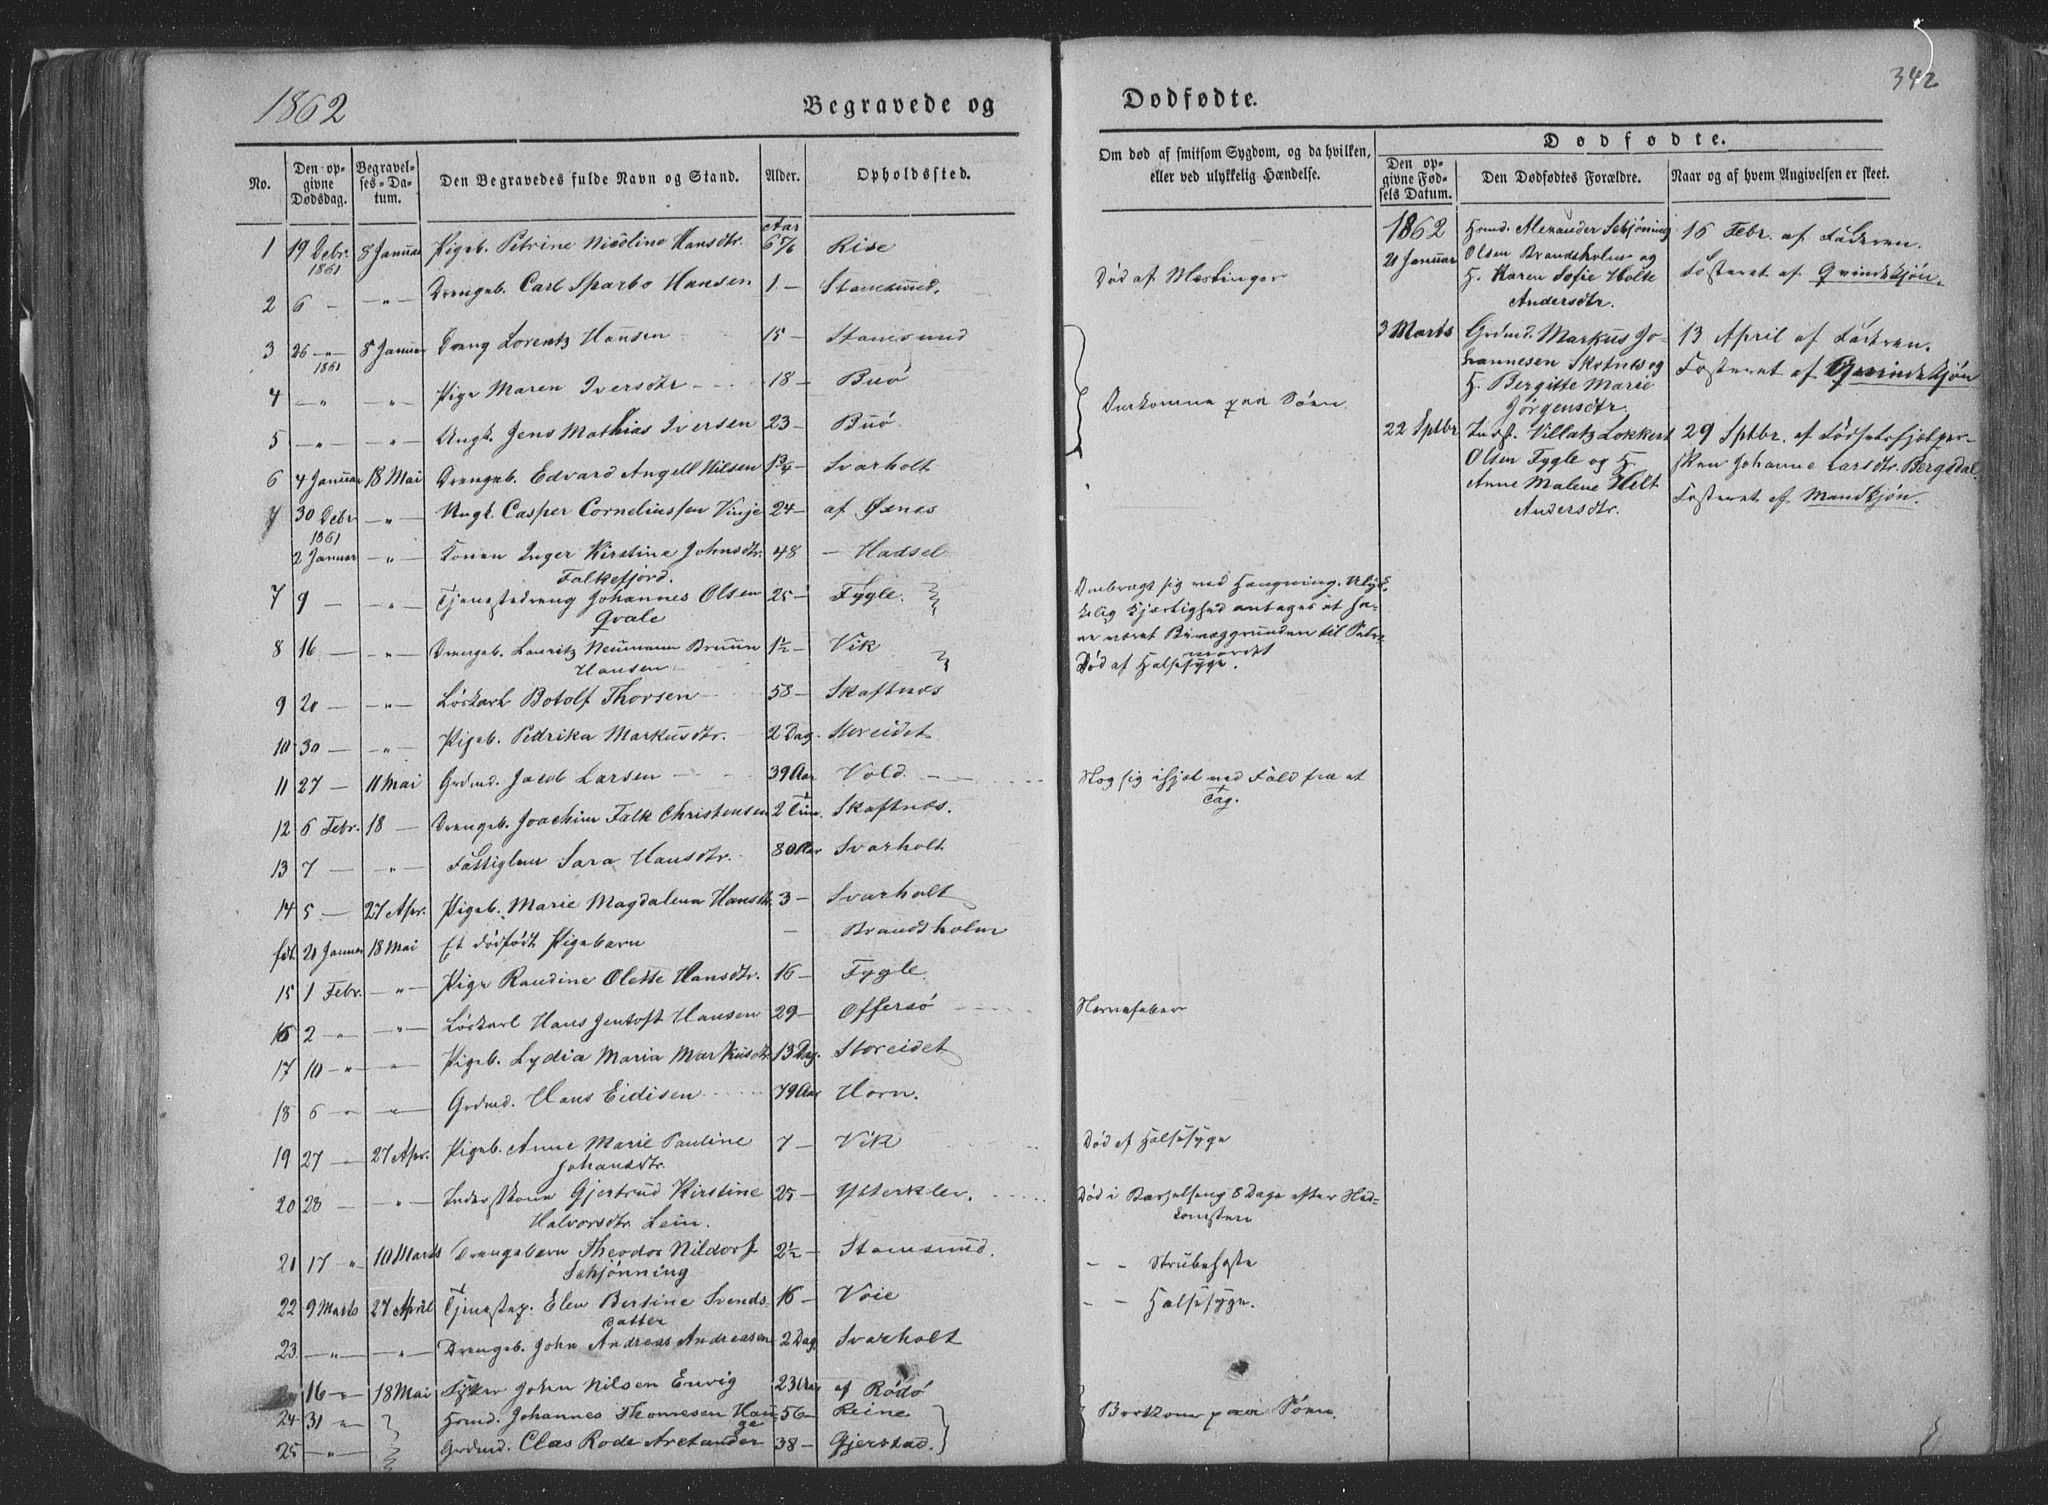 1862 Begravede og
No. Den opgivne Dødsdag. Begravelses-Datum. Den Begravedes fulde Navn og Stand. Alder. Opholdssted.
Aar
1 19 Debr. 1861 8 Januar Pigeb. Petrine Nicoline Hansdtr. 6 Rise
2 6 — — " — Drengeb. Carl Sparbo Hansen 1 — Stamsund.
3 26 — " — 1861 8 Januar Dreng Lorentz Hansen 15 — Stamsund
4 — " — — " — Pige Maren Iversdtr 18 — Buø
5 — " — — " — Ungk. Jens Mathias Iversen 23 — Buø.
6 4 Januar 18 Mai Drengeb. Edvard Angell Nilsen 1 3/4 — Svarholt
30 Debr 1861 — " — Ungk. Casper Corneliussen Vinje 24 — af Øxnes
2 Januar — " — Konen Inger Kirstine Johnsdtr. 48 — Hadsel
Falkefjord.
7 9 — — " — Tjenestedreng Johannes Olsen 25 — Fygle.
Qvale
8 16 — — " — Drengeb. Lauritz Neumann Bruun 1 1/2 — Vik
Hansen
9 20 — — " — Løskarl Botolf Thorsen 58 — Skaftnæs
10 30 — — " — Pigeb. Pedrika Markusdtr. 2 Dag. Storeidet
11 27 — 11 Mai Grdmd. Jacob Larsen 39 Aar Vold.
12 6 Febr. 18 — Drengeb. Joachim Falk Christensen 2 Tim. Skaftnæs.
13 7 — — " — Fattiglem Sara Hansdtr. 80 Aar Svarholt
14 5 — 27 Apr. Pigeb. Marie Magdalena Hansdtr. 3 — Svarholt
fdt. 20 Januar 18 Mai Et dødfødt Pigebarn — Brandsholm
15 1 Febr. — " — Pige Raudine Olette Hansdtr. 16 — Fygle
16 2 — " — " — Løskarl Hans Jentoft Hansen 29 — Offersø
17 10 — " — " — Pigeb. Lydia Maria Markusdtr. 13 Dag. Storeidet
18 6 — " — " — Grdmd. Hans Eidisen 79 Aar Horn.
19 27 — 27 Apr. Pigeb. Anne Marie Pauline 7 — Vik
Johansdtr.
20 28 — — " — Inderstkone Gjertrud Kirstine 25 — Ytterklev.
Halvorsdtr. Lein.
21 17 " 10 Marts Drengebarn Theodor Nildorf 2 1/2 — Stamsund.
Schjønning
22 9 Marts 27 April Tjenestep. Elen Bertine Svends- 16 — Voie
datter
23 — " — — " — Drengeb. John Andreas Andreasen 2 Dag Svarholt
16 — " — 18 Mai John Nilsen 23 Aar af Rødø
24 31 " Hmd. Johannes Thomesen Hau- 56 — Reine
ge
25 — " — Grdmd. Clas Rode Arctander 38 — Gjerstad.
Dødfødte.
342
Om død af smitsom Sygdom, og da hvilken, eller ved ulykkelig Hændelse.
Død af Mæslinger
Omkomne paa Søen.
Ombragt sig ved Hængning. Ulyk-
kelig Kjærlighed antages at ha-
ve været Bevæggrunden til Selv-
mordet
Død af Halsesyge.
Slog sig ihjel ved Fald fra et
Tag.
Nervefeber
Død af Halsesyge
Død i Barselseng 8 Dage efter Ned-
komsten
— — Strubehoste
— — Halsesyge.
Bortkom paa Søen.
Dødfødte.
Den opgivne Fødsels Datum. Den Dødfødtes Forældre. Naar og af hvem Angivelsen er skeet.
1862
20 Januar Hmd. Alexander Schjønning 16 Febr. af Faderen.
Olsen Brandsholm og Fosteret af Qvindekjøn.
H. Karen Sofie Holte
Andersdtr.
3 Marts Grdmd. Markus Jo- 13 April af Faderen.
hannesen Skotnes og Fosteret af Qvindekjøn
H. Bergitte Marie
Jørgensdtr.
22 Sptbr Indst. Villatz Lokkert 29 Sptbr. af Fødselshjælper-
Olsen Fygle og H. sken Johanne Larsdtr. Bergsdal
Anne Malene Helt Fosteret af Mandkjøn.
Andersdtr.